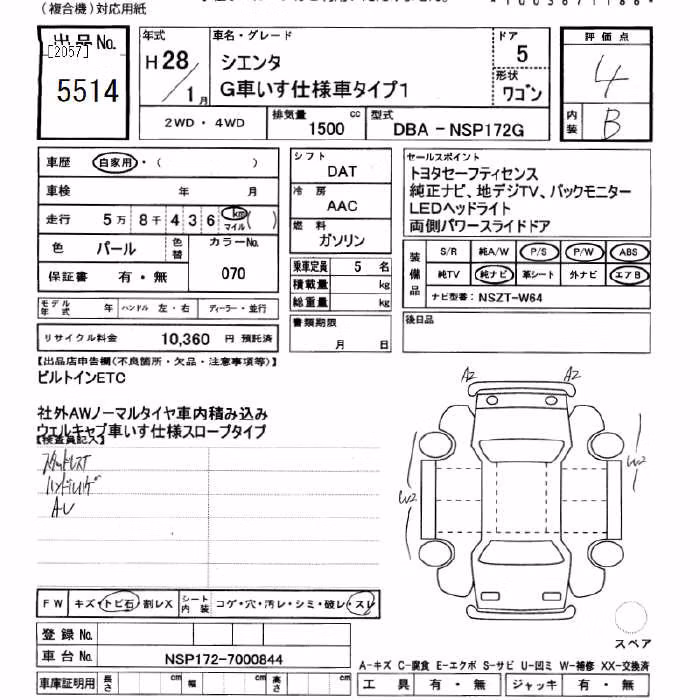 (複合機)対応用紙
出品No.
[2057]
5514
年式
H 28 / 1月
車名・グレード
シエンタ
G車いす仕様車タイプ1
ドア
5
形状
ワゴン
2WD・4WD
排気量 1500 cc
型式 DBA-NSP172G
評価点
4
内装
B
車歴 自家用・( )
車検 年 月
走行 5万 8千 4 3 6 km マイル ( )
色 パール 色替 カラーNo.
保証書 有・無 070
モデル年式 年 ハンドル 左・右 ディーラー・並行
リサイクル料金 10,360 円 預託済
シフト
DAT
冷房
AAC
燃料
ガソリン
乗車定員 5 名
積載量 kg
総重量 kg
書類期限
月 日
セールスポイント
トヨタセーフティセンス
純正ナビ、地デジTV、バックモニター
LEDヘッドライト
両側パワースライドドア
装備品
S/R 純A/W P/S P/W ABS
純TV 純ナビ 革シート 外ナビ エアB
ナビ型番: NSZT-W64
後日品
【出品店申告欄(不良箇所・欠品・注意事項等)】
ビルトインETC
社外AWノーマルタイヤ車内積み込み
ウェルキャブ車いす仕様スロープタイプ
【検査員記入】
AV
A2 A2
W2 W2
FW キズ・トビ石・割レX シート内装 コゲ・穴・汚レ・シミ・破レ・スレ
登録No.
車台No. NSP172-7000844
車庫証明用 長さ cm 幅 cm 高さ cm
スペア
A-キズ C-腐食 E-エクボ S-サビ U-凹ミ W-補修 XX-交換済
工具 有・無 ジャッキ 有・無